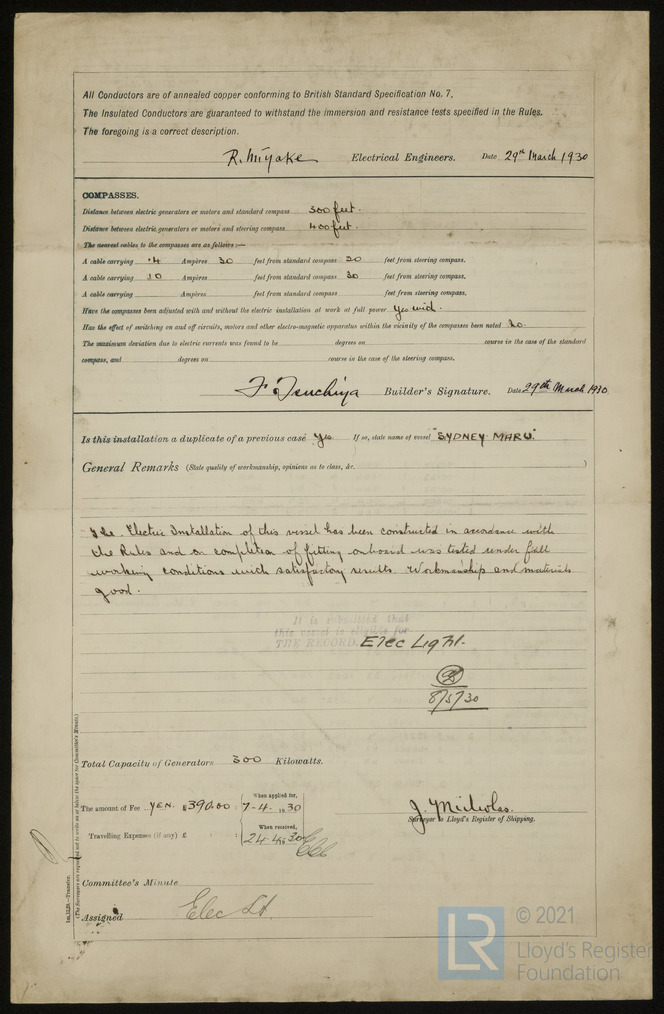 All Conductors are of annealed copper conforming to British Standard Specification No. 7.
The Insulated Conductors are guaranteed to withstand the immersion and resistance tests specified in the Rules.
The foregoing is a correct description.
R. Miyake Electrical Engineers. Date 29th March 1930
COMPASSES.
Distance between electric generators or motors and standard compass 300 feet.
Distance between electric generators or motors and steering compass 400 feet.
The nearest cables to the compasses are as follows:—
A cable carrying .4 Ampères 30 feet from standard compass 20 feet from steering compass.
A cable carrying 10 Ampères feet from standard compass 30 feet from steering compass.
A cable carrying Ampères feet from standard compass feet from steering compass.
Have the compasses been adjusted with and without the electric installation at work at full power Yes
Has the effect of switching on and off circuits, motors and other electro-magnetic apparatus within the vicinity of the compasses been noted
The maximum deviation due to electric currents was found to be degrees on course in the case of the standard
compass, and degrees on course in the case of the steering compass.
F. Tsuchiya Builder's Signature. Date 29th March 1930
Is this installation a duplicate of a previous case Yes If so, state name of vessel "SYDNEY MARU."
General Remarks (State quality of workmanship, opinions as to class, &c. )
The Electric Installation of this vessel has been constructed in accordance with
the Rules and on completion of fitting onboard was tested under full
working conditions with satisfactory results. Workmanship and materials
good.
It is submitted that
this vessel is eligible for
THE RECORD. Elec Light.
8/5/30
Total Capacity of Generators 300 Kilowatts.
The amount of Fee YEN. 390.00
When applied for,
7-4-1930
Travelling Expenses (if any) £ :
When received,
24.4.1930
J. Nicholas.
Surveyor to Lloyd's Register of Shipping.
Committee's Minute
Assigned Elec Lt.
(The Surveyors are requested not to write on or below the space for Committee's Minute.)
© 2021
LR
Lloyd's Register
Foundation